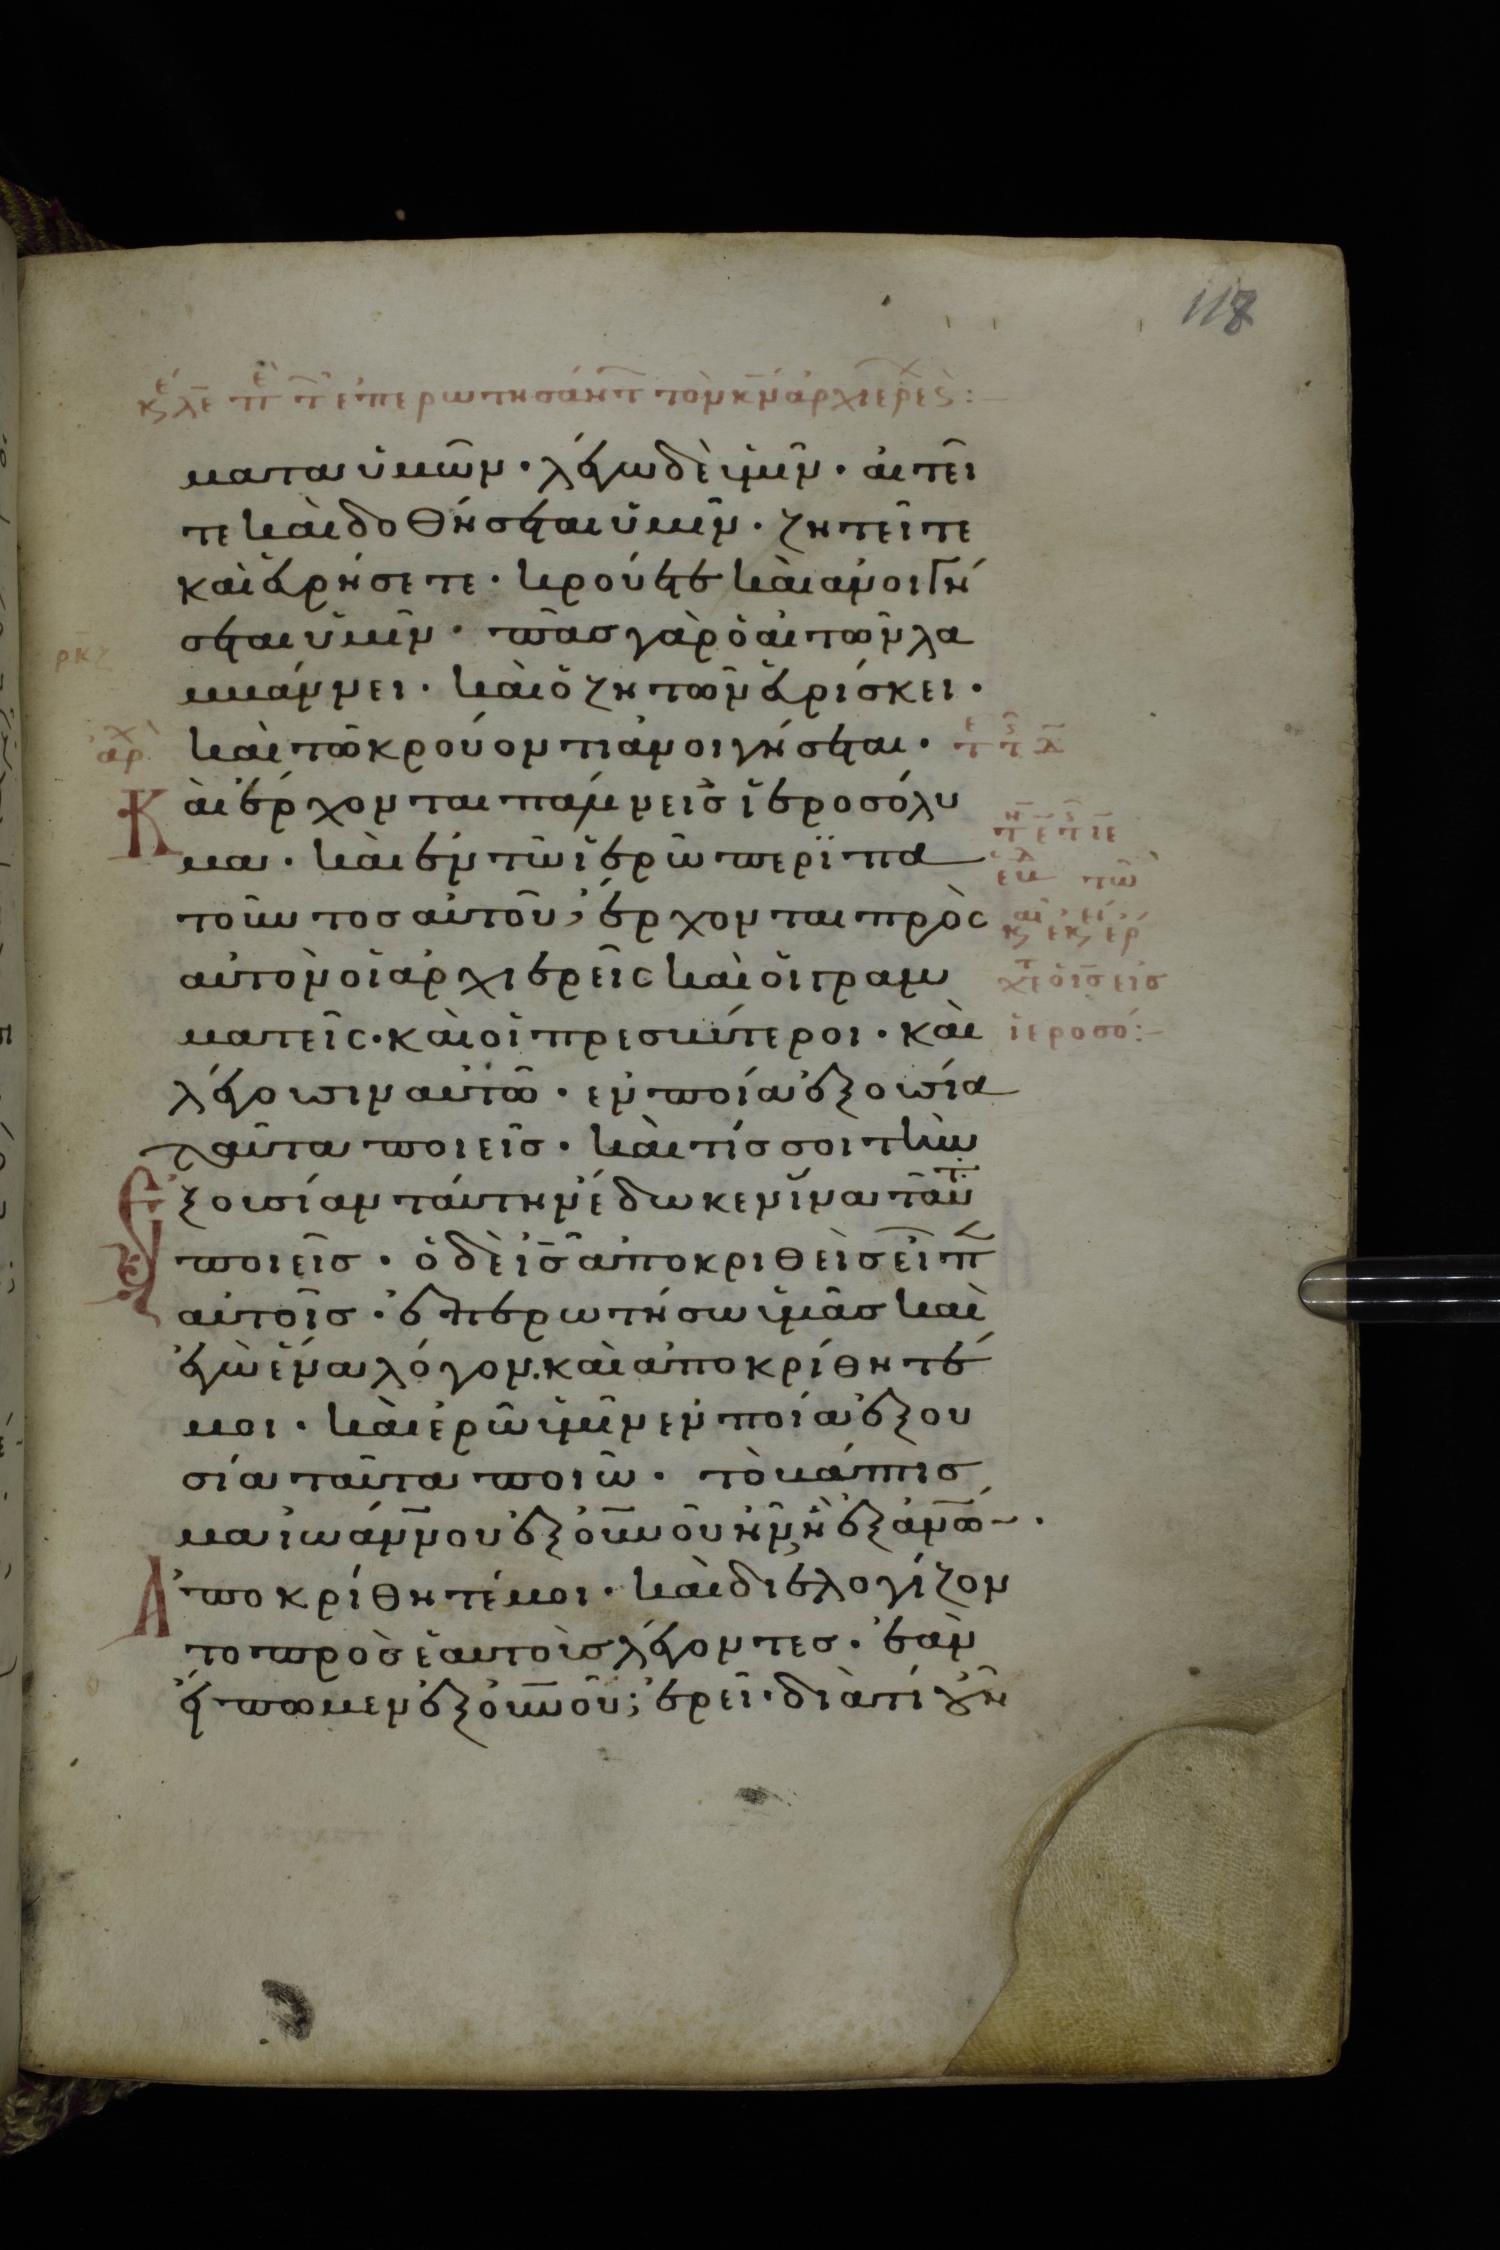 118
κεφ λε περὶ τῶν ἐπερωτησάντ τὸν κν ἀρχιερεῖς:
ματα ὑμῶν · λέγω δὲ ὑμῖν · αἰτεῖ
τε καὶ δοθήσεται ὑμῖν · ζητεῖτε
καὶ εὑρήσετε · κρούετε καὶ ἀνοιγή
σεται ὑμῖν · πᾶς γὰρ ὁ αἰτῶν λα
ρκζ
μβάννει · καὶ ὁ ζητῶν εὑρίσκει ·
ἀρχ
καὶ τῶ κρούοντι ἀνοιγήσεται ·
Καὶ ἔρχονται πάλιν εἰς ἱεροσόλυ
μα · καὶ ἐν τῶ ἱερῶ περϊπα
τοῦντος αὐτοῦ, ἔρχονται πρὸς
αὐτὸν οἱ ἀρχιερεῖς καὶ οἱ γραμ
ματεῖς · καὶ οἱ πρεσβύτεροι · καὶ
ἱεροσό:
λέγουσιν αὐτῶ · ἐν ποία ἐξουσία
ταῦτα ποιεῖς · καὶ τίς σοι τὴν
ἐξουσίαν ταύτην ἔδωκεν ἵνα ταῦτ
ποιεῖς · ὁ δὲ ις ἀποκριθεὶς εἶπ
αὐτοῖς · ἐπερωτήσω ὑμᾶς καὶ
ἐγὼ ἕνα λόγον. καὶ ἀποκρίθητέ
μοι · καὶ ἐρῶ ὑμῖν ἐν ποία ἐξου
σία ταῦτα ποιῶ · τὸ βάπτισ
μα ἰωάννου ἐξ οὐνοῦ ἦν ἢ ἐξ ἀνων ·
Ἀποκρίθητέ μοι · καὶ διελογίζον
το πρὸς ἑαυτοὺς λέγοντες · ἐὰν
εἴπωμεν ἐξ οὐνοῦ; ἐρεῖ · διὰτί οὖν